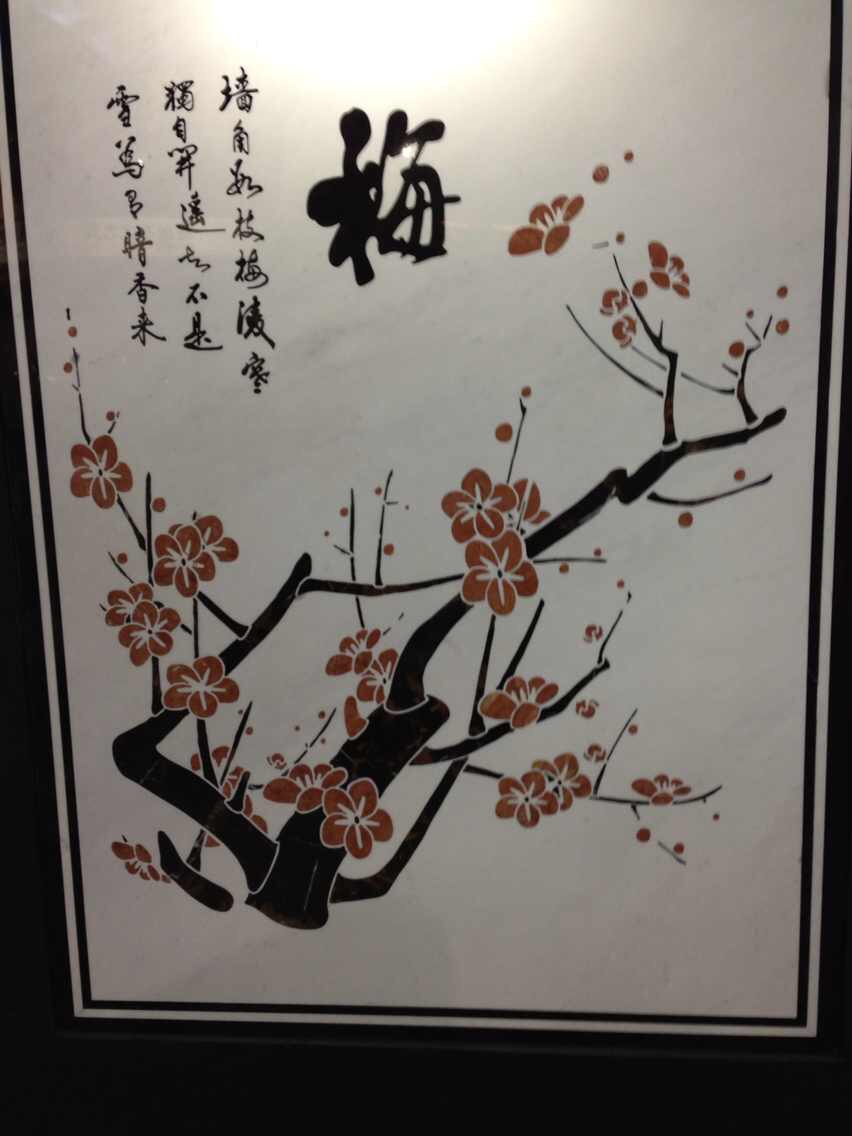 梅
墙角数枝梅凌寒
獨自開遥知不是
雪為有暗香来